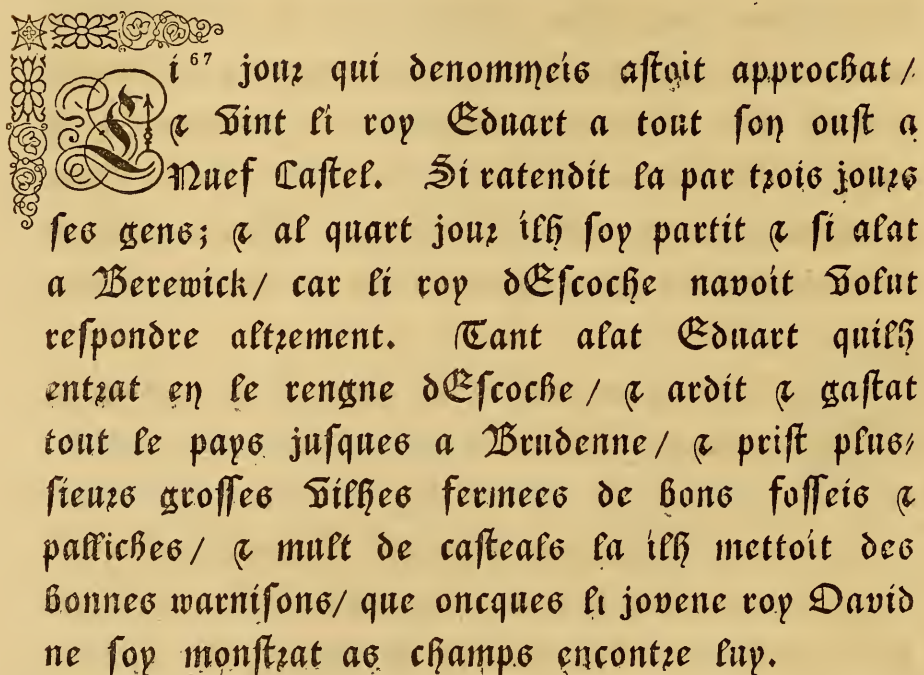 Li ⁶⁷ jour qui denommeis astoit approchat /
& vint li roy Eduart a tout son oust a
Nuef Castel. Si ratendit la par trois jours
ses gens; & al quart jour ilh soy partit & si alat
a Berewick / car li roy dEscoche navoit volut
respondre altrement. Tant alat Eduart quilh
entrat en le rengne dEscoche / & ardit & gastat
tout le pays jusques a Brudenne / & prist plus-
sieurs grosses vilhes fermees de bons fosseis &
palliches / & mult de casteals la ilh mettoit des
bonnes warnisons / que oncques li jovene roy David
ne soy monstrat as champs encontre luy.